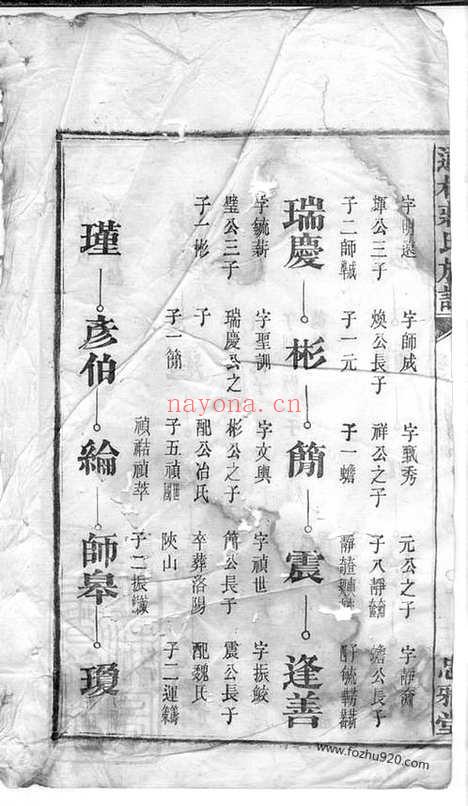 忠雅堂
字明遠
字師成
字甄秀
元公之子
字靜
㻶公三子
煥公長子
祥公之子
子八靜
蟾公長子
子二師
子一元
子一蟾
瑞慶 彬 簡 震 逢善
字毓薪
字聖訓
字文興
字禎世
字振鮫
璧公三子
瑞慶公之
彬公之子
簡公長子
震公長子
子一彬
子
配公冶氏
卒葬洛陽
配魏氏
子一簡
子五禎
陝山
子二運
禎祜禎萃
子二振
瑾 彥伯 綸 師皋 瓊
nayona.cn
www.fozhu920.com